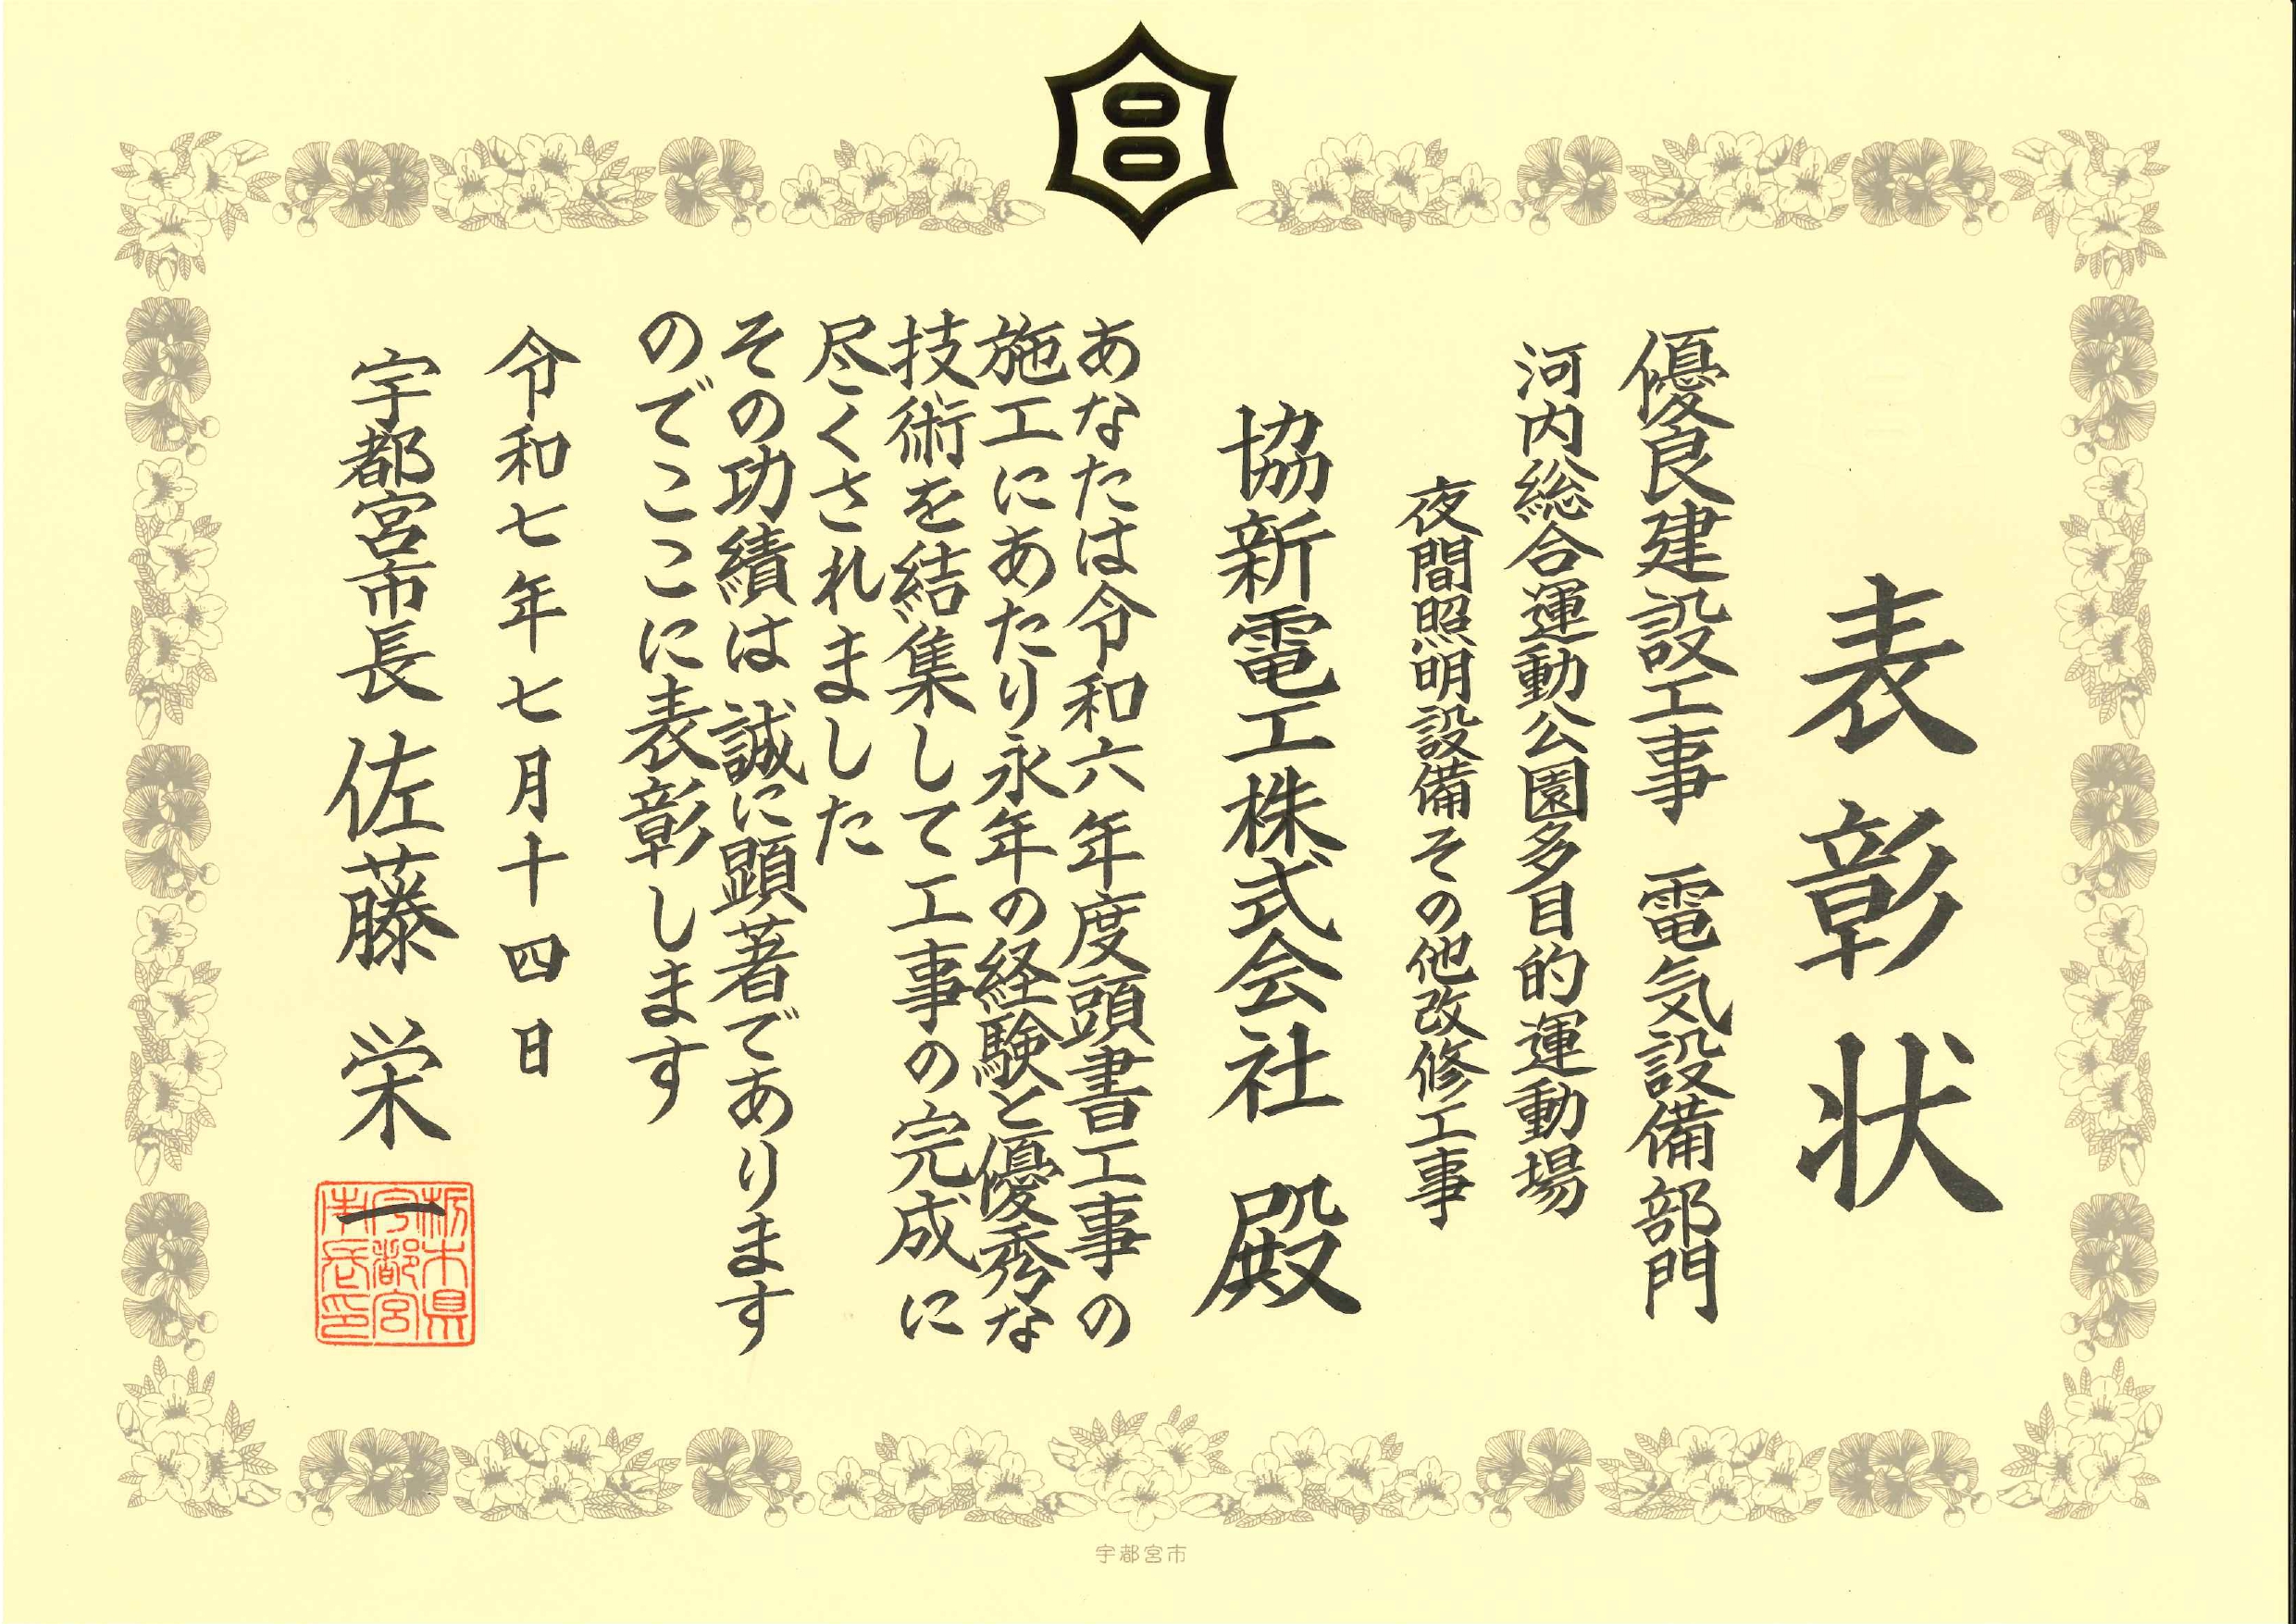 表彰状
優良建設工事 電気設備部門
河内総合運動公園多目的運動場
夜間照明設備その他改修工事
協新電工株式会社 殿
あなたは令和六年度頭書工事の
施工にあたり永年の経験と優秀な
技術を結集して工事の完成に
尽くされました
その功績は誠に顕著であります
のでここに表彰します
令和七年七月十四日
宇都宮市長 佐藤 栄一
栃木県
宇都宮
市長印
宇都宮市